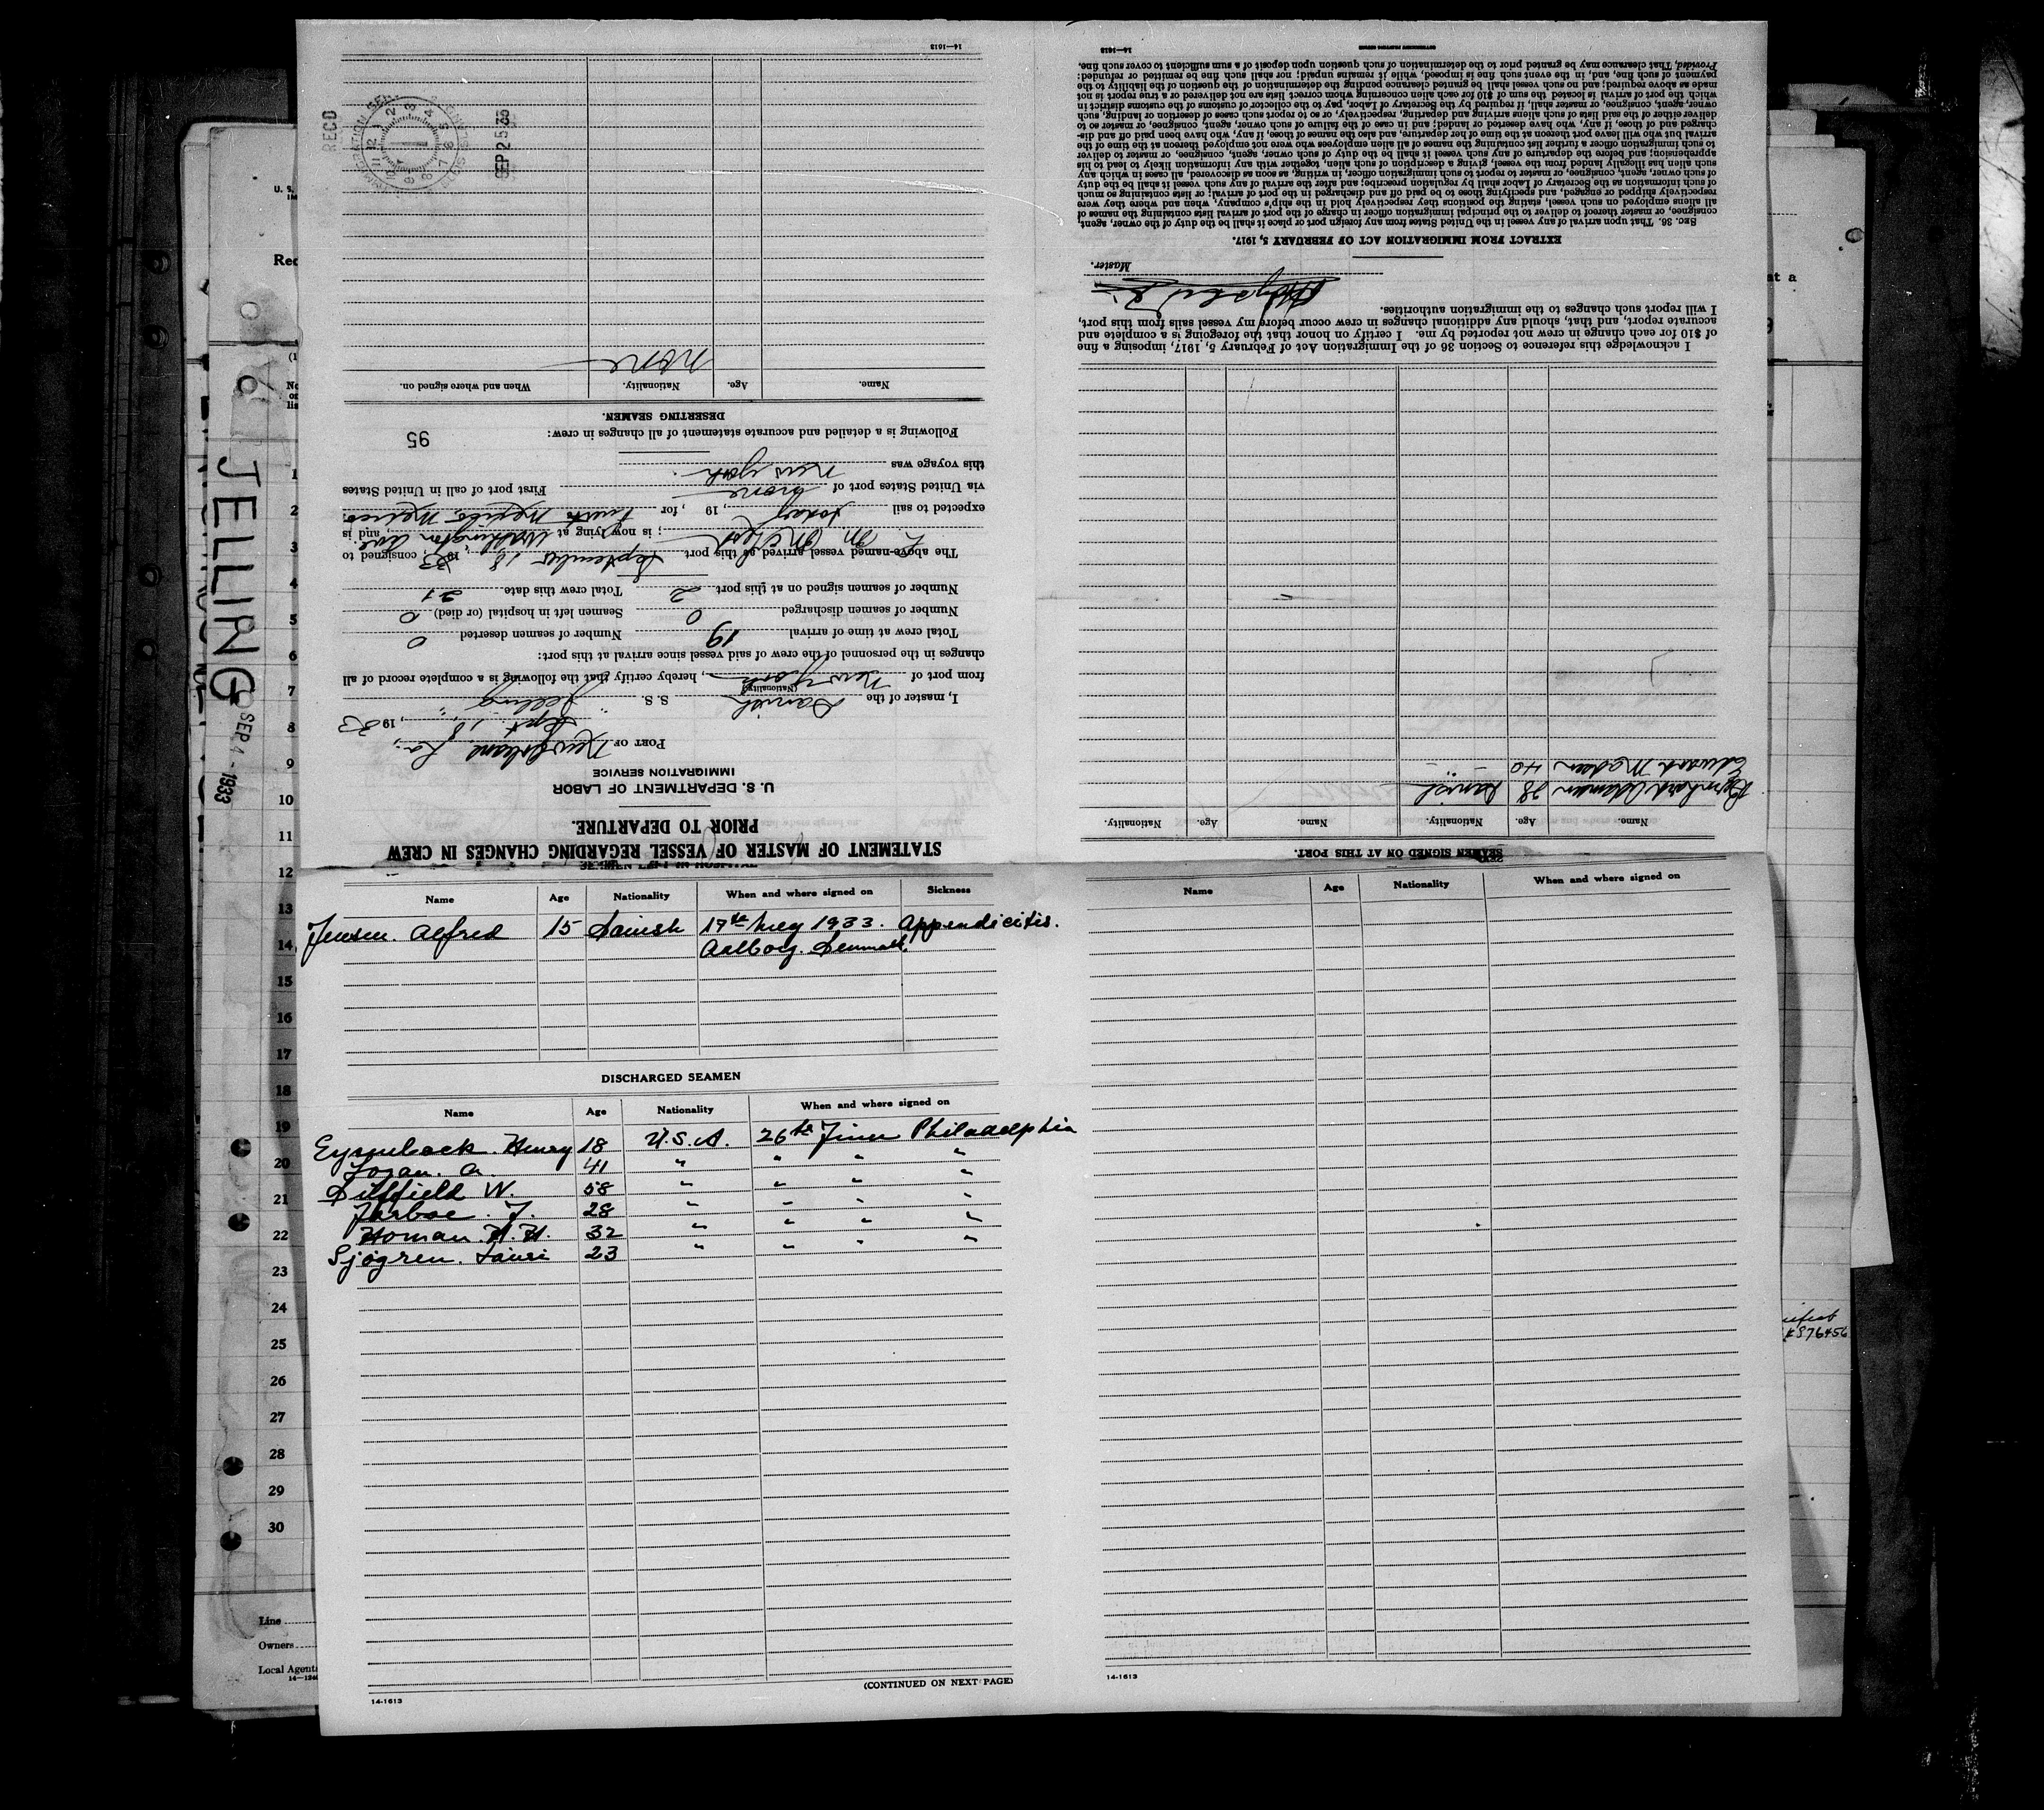 STATEMENT OF MASTER OF VESSEL REGARDING CHANGES IN CREW
PRIOR TO DEPARTURE.
U. S. DEPARTMENT OF LABOR
IMMIGRATION SERVICE
PORT OF New Orleans La;
Sept. 18, 1933
I, master of the Danish S. S. "Jelling"
(Nationality)
from port of New York, hereby certify that the following is a complete record of all
changes in the personnel of the crew of said vessel since arrival at this port:
Total crew at time of arrival 19 Number of seamen deserted 0
Number of seamen discharged 0 Seamen left in hospital (or died) 0
Number of seamen signed on at this port 2 Total crew this date 21
The above-named vessel arrived at this port September 18, 1933 consigned to
; is now lying at Washington Ave. and is
expected to sail today, 19 , for Puerto Mexico Mexico
via United States port of none First port of call in United States
this voyage was New York.
Following is a detailed and accurate statement of all changes in crew:
95
DESERTING SEAMEN.
Name. Age. Nationality. When and where signed on.
none
RECD
IMMIGRATION SERVICE
SEP 25 33
14—1613
SEAMEN SIGNED ON AT THIS PORT.
Name. Age. Nationality. Name. Age. Nationality.
Bernhard Adamsen 28 Danish
Edward Madsen 40 " "
I acknowledge this reference to Section 36 of the Immigration Act of February 5, 1917, imposing a fine
of $10 for each change in crew not reported by me. I certify on honor that the foregoing is a complete and
accurate report, and that, should any additional changes in crew occur before my vessel sails from this port,
I will report such changes to the immigration authorities.
Master.
EXTRACT FROM IMMIGRATION ACT OF FEBRUARY 5, 1917.
SEC. 36. That upon arrival of any vessel in the United States from any foreign port or place it shall be the duty of the owner, agent,
consignee, or master thereof to deliver to the principal immigration officer in charge of the port of arrival lists containing the names of
all aliens employed on such vessel, stating the positions they respectively hold in the ship's company, when and where they were
respectively shipped or engaged, and specifying those to be paid off and discharged in the port of arrival; or lists containing so much
of such information as the Secretary of Labor shall by regulation prescribe; and after the arrival of any such vessel it shall be the duty
of such owner, agent, consignee, or master to report to such immigration officer, in writing, as soon as discovered, all cases in which any
such alien has illegally landed from the vessel, giving a description of such alien, together with any information likely to lead to his
apprehension; and before the departure of any such vessel it shall be the duty of such owner, agent, consignee, or master to deliver
to such immigration officer a further list containing the names of all alien employees who were not employed thereon at the time of the
arrival but who will leave port thereon at the time of her departure, and also the names of those, if any, who have been paid off and dis-
charged and of those, if any, who have deserted or landed; and in case of the failure of such owner, agent, consignee, or master so to
deliver either of the said lists of such aliens arriving and departing, respectively, or so to report such cases of desertion or landing, such
owner, agent, consignee, or master shall, if required by the Secretary of Labor, pay to the collector of customs of the customs district in
which the port of arrival is located the sum of $10 for each alien concerning whom correct lists are not delivered or a true report is not
made as above required; and no such vessel shall be granted clearance pending the determination of the question of the liability to the
payment of such fine, and, in the event such fine is imposed, while it remains unpaid; nor shall such fine be remitted or refunded:
Provided, That clearance may be granted prior to the determination of such question upon deposit of a sum sufficient to cover such fine.
14—1613
Name Age Nationality When and where signed on Sickness
Jensen. Alfred 15 Danish 17th May 1933. Appendicitis.
Aalborg. Denmark.
DISCHARGED SEAMEN
Name Age Nationality When and where signed on
Henry 18 U.S.A. 26th June Philadelphia
Logan. A. 41 " " " "
W. 58 " " " "
Jarboe. J. 28 " " " "
Homan. H. H. 32 " " " "
Sjögren. Lauri 23 " " " "
(CONTINUED ON NEXT PAGE)
14-1613
Name Age Nationality When and where signed on
14-1613
JELLING
SEP 4 - 1933
1
2
3
4
5
6
7
8
9
10
11
12
13
14
15
16
17
18
19
20
21
22
23
24
25
26
27
28
29
30
Line
Owners
Local Agents